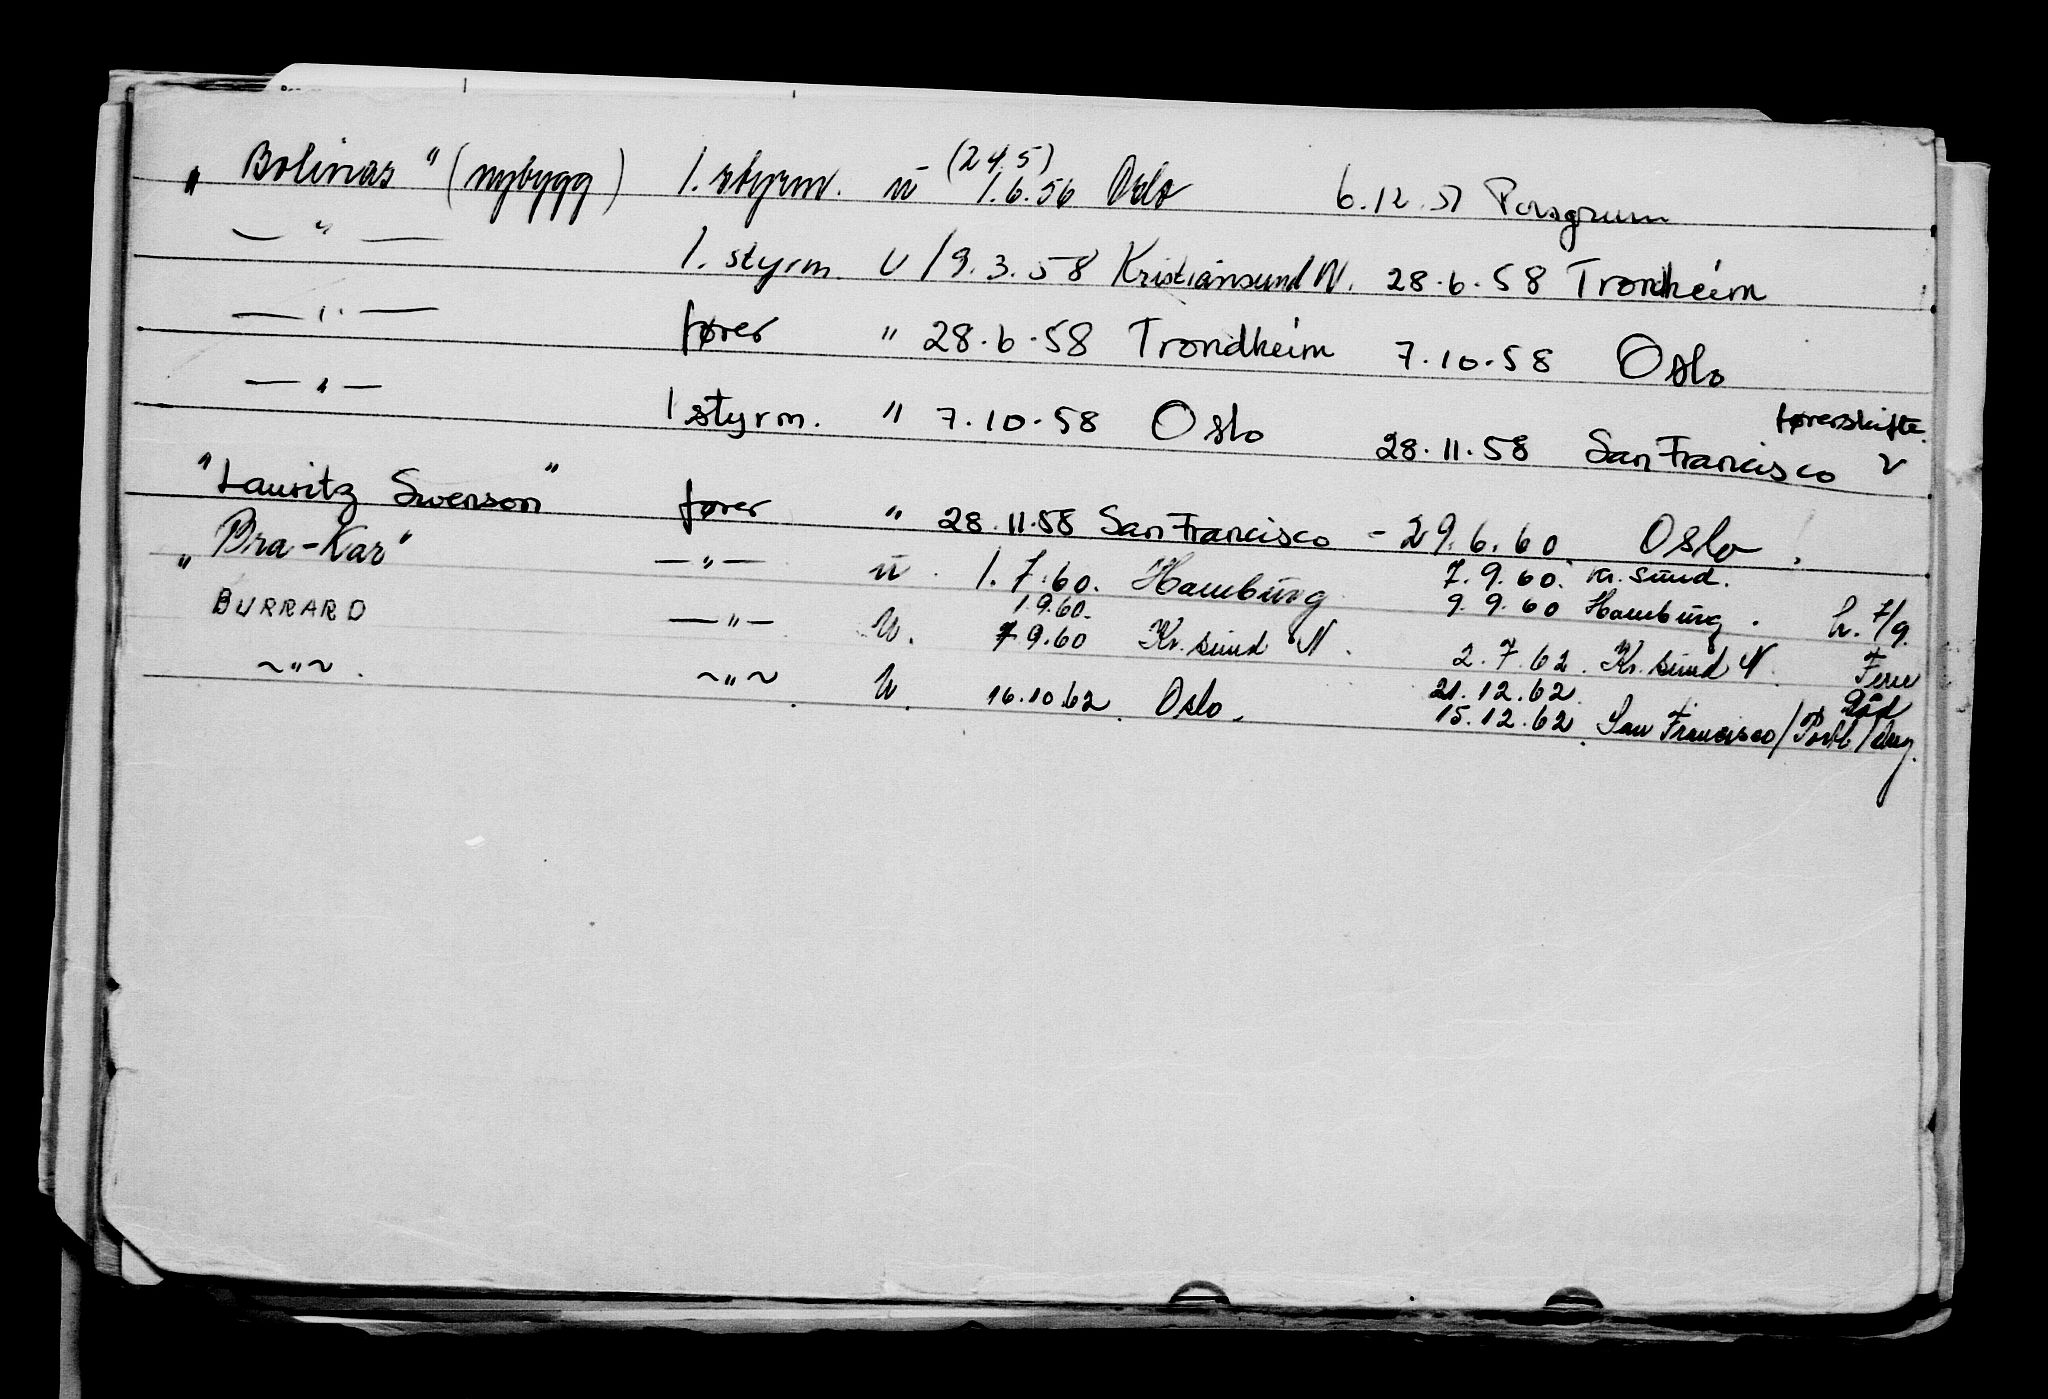 „ Bolinas " (nybygg) 1. styrm. u (24.5) 1.6.56 Oslo 6.12.57 Porsgrunn
— " — 1. styrm. u 19.3.58 Kristiansund N. 28.6.58 Trondheim
— " — fører " 28.6.58 Trondheim 7.10.58 Oslo
— " — 1 styrm. " 7.10.58 Oslo 28.11.58 San Francisco førerskifte
"Lauritz Swenson" fører " 28.11.58 San Francisco - 29.6.60 Oslo
„ Bra-Kar" — " — u. 1.7.60. Hamburg 7.9.60. Kr. sund.
1.9.60. 9.9.60 Hamburg. h. 7/9.
BURRARD — " — u. 7.9.60 Kr. sund N. 2.7.62. Kr. sund N. Ferie
~ " ~. ~ " ~ u. 16.10.62. Oslo. 21.12.62.
15.12.62. San Francisco /